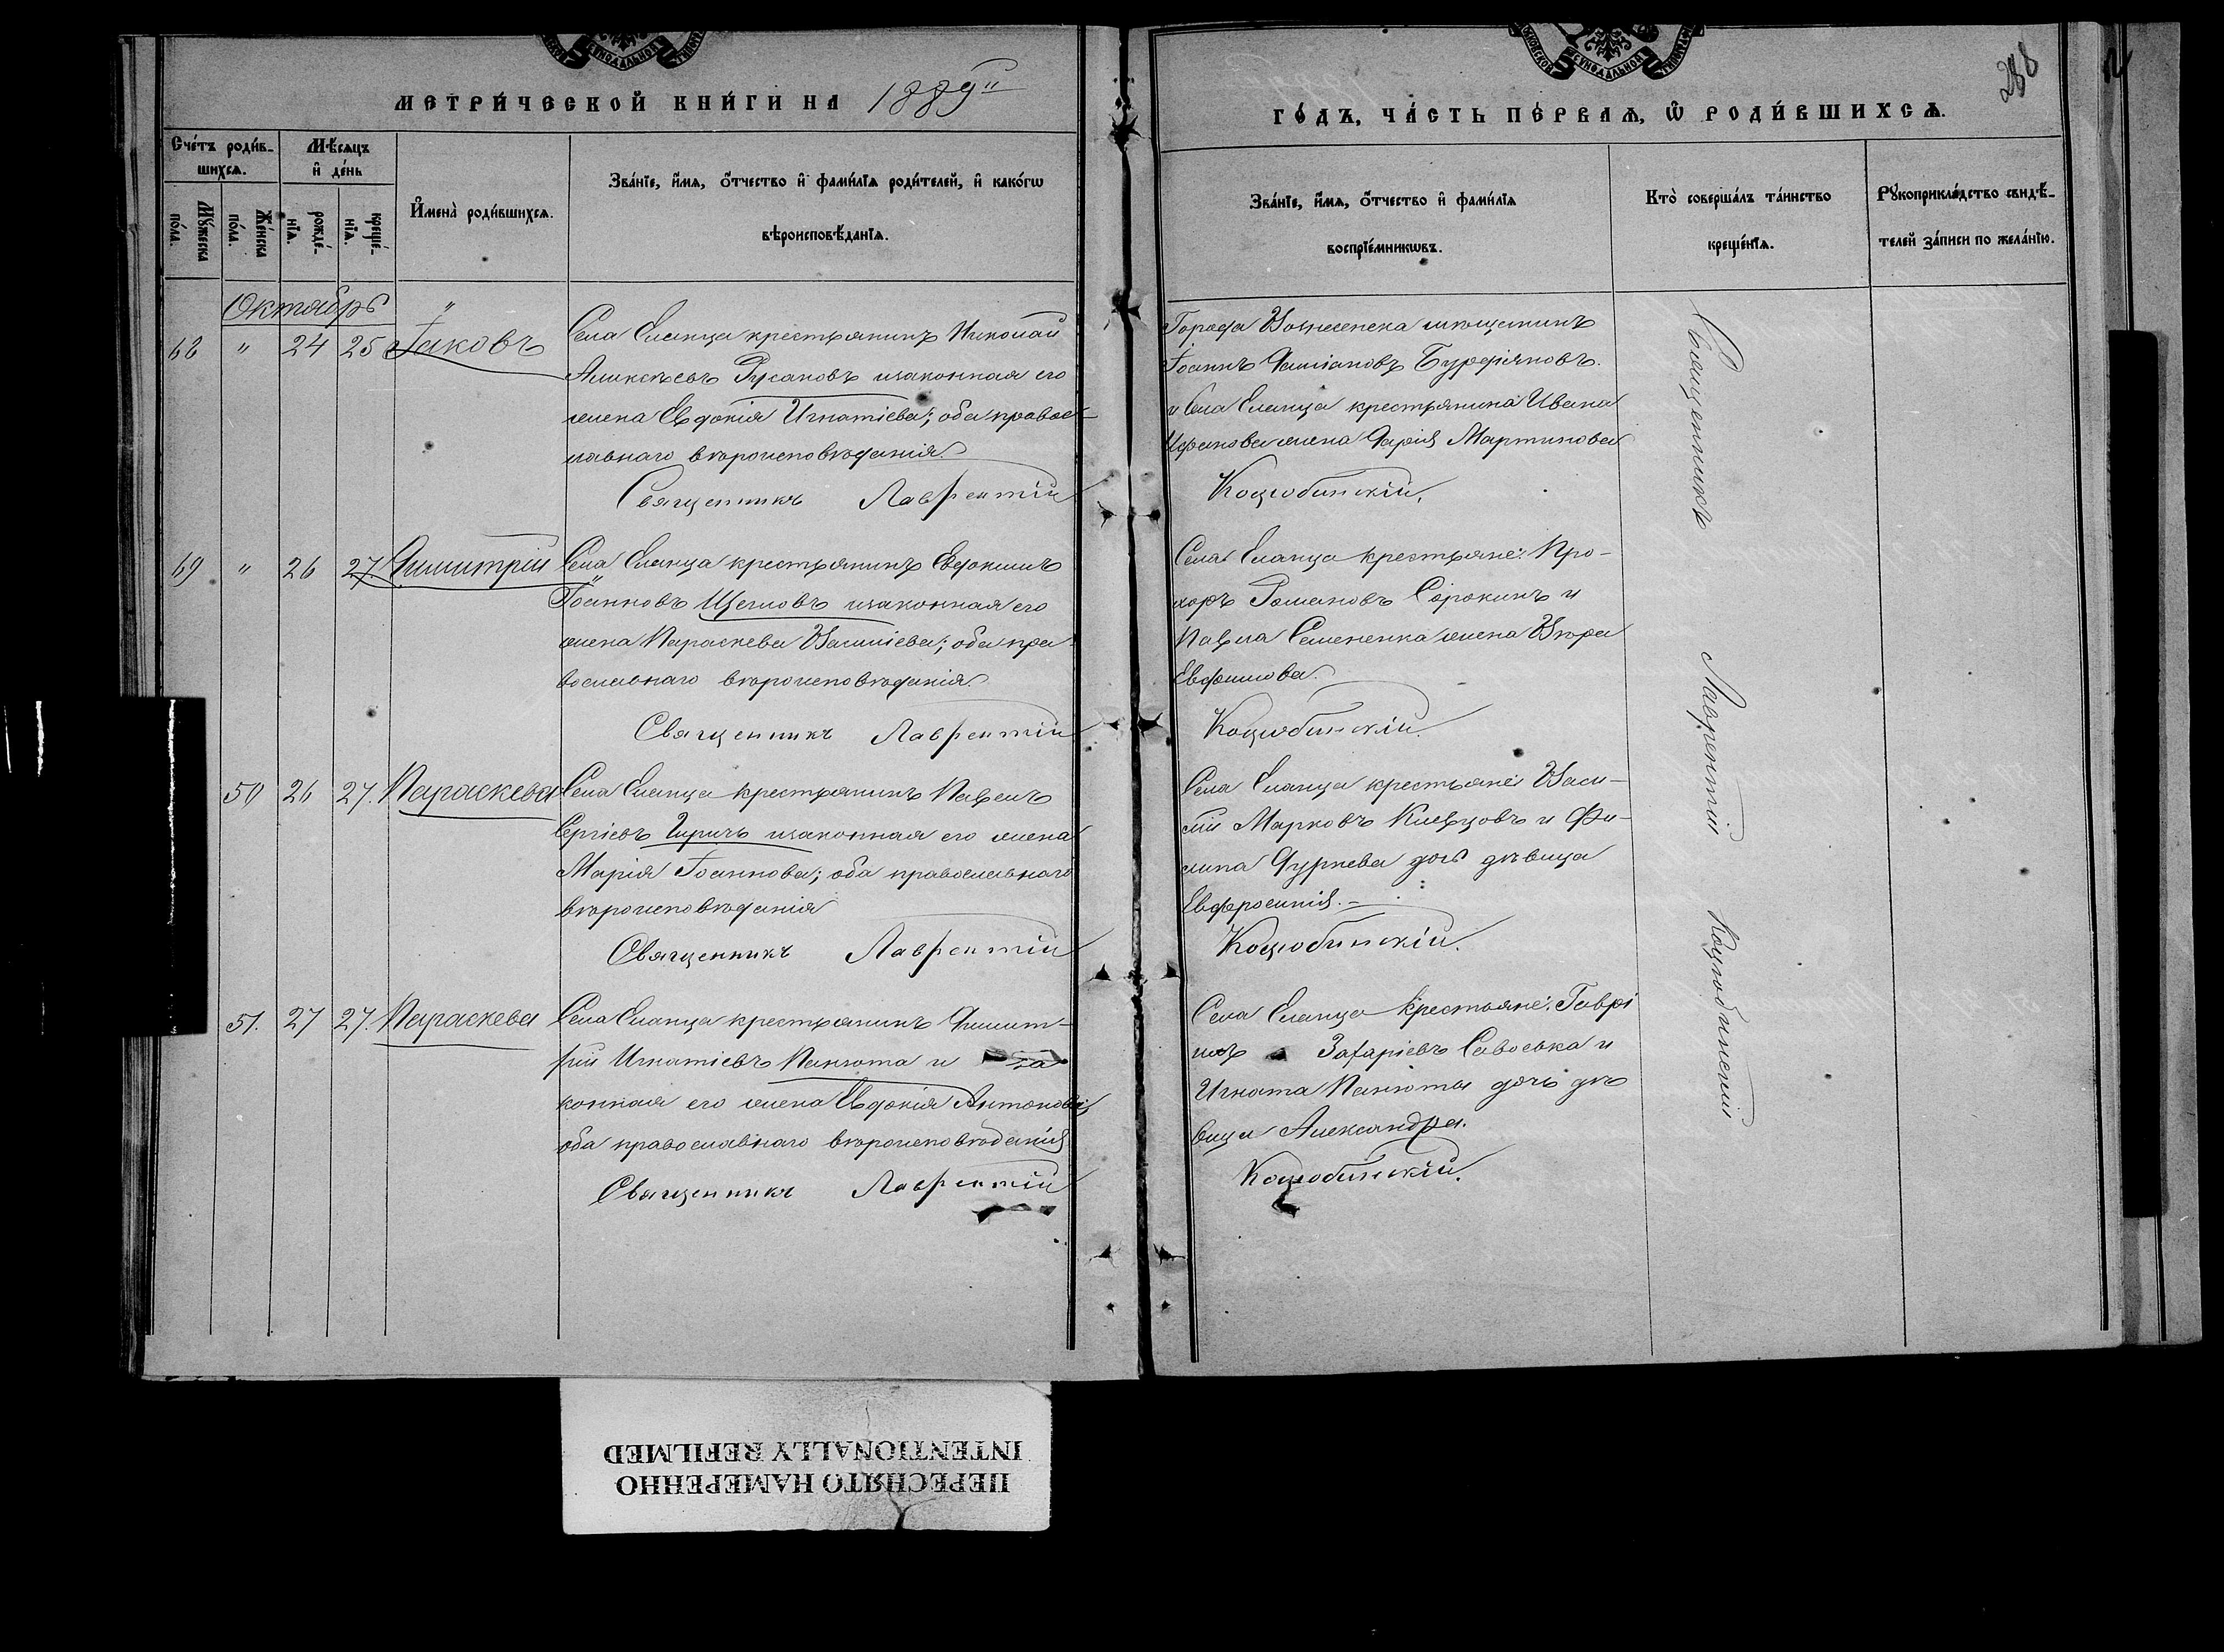 МЕТРИ́ЧЕСКОЙ КНИ́ГИ НА 1889й
ГО́ДЪ, ЧА́СТЬ ПЕ́РВАѦ, Ѡ РОДИ́ВШИХСѦ.
288
Сче́тъ роди́в-
шихсѧ.
Мѣ́сѧцъ
и҆ де́нь
Мꙋ́жеска
по́ла.
Же́нска
по́ла.
рожде́-
нїѧ.
креще́-
нїѧ.
И҆мена̀ роди́вшихсѧ.
Зва́нїе, и҆́мѧ, ѻ҆́тчество и҆ фами́лїѧ роди́телей, и҆ како́гѡ
вѣроисповѣ́данїѧ.
Зва́нїе, и҆́мѧ, ѻ҆́тчество и҆ фами́лїѧ
воспрїе́мникѡвъ.
Кто̀ соверша́лъ та́инство
креще́нїѧ.
Рꙋкоприкла́дство свидѣ́-
телей за́писи по жела́нїю.
Октябрь
68 " 24 25 Іаковъ
Села Еланца крестьянинъ Николай
Алексѣевъ Русановъ и законная его
жена Евдокія Игнатіева; оба право-
славнаго вѣроисповѣданія.
Священникъ Лаврентій
Города Вознесенска мѣщанинъ
Іоаннъ
и села Еланца крестьянина Ивана
жена Дарія Мартинова
Коцюбинскій.
69 " 26 27. Димитрій
Села Еланца крестьянинъ Евдокимъ
Іоанновъ Щегловъ и законная его
жена Параскева Васильева; оба пра-
вославнаго вѣроисповѣданія.
Священникъ Лаврентій
Села Еланца крестьяне: Про-
хоръ Романовъ Сорокинъ и
Павла Семененка жена Вѣра
Евфимова.
Коцюбинскій.
50 26 27. Параскева
Села Еланца крестьянинъ Павелъ
Сергіевъ и законная его жена
Марія Іоаннова; оба православнаго
вѣроисповѣданія
Священникъ Лаврентій
Села Еланца крестьяне: Васи-
лій Марковъ и Фи-
липа дочь дѣвица
Евфросинія.
Коцюбинскій.
51. 27 27. Параскева
Села Еланца крестьянинъ Димит-
рій Игнатіевъ Панюта и за
конная его жена Евдокія Антонова;
оба православнаго вѣроисповѣданія
Священникъ Лаврентій
Села Еланца крестьяне: Гаврі
илъ Захаріевъ Савоська и
Игната Панюты дочь дѣ
вица Александра.
Коцюбинскій.
Священникъ Лаврентій Коцюбинскій
ПЕРЕСНЯТО НАМЕРЕННО
INTENTIONALLY REFILMED